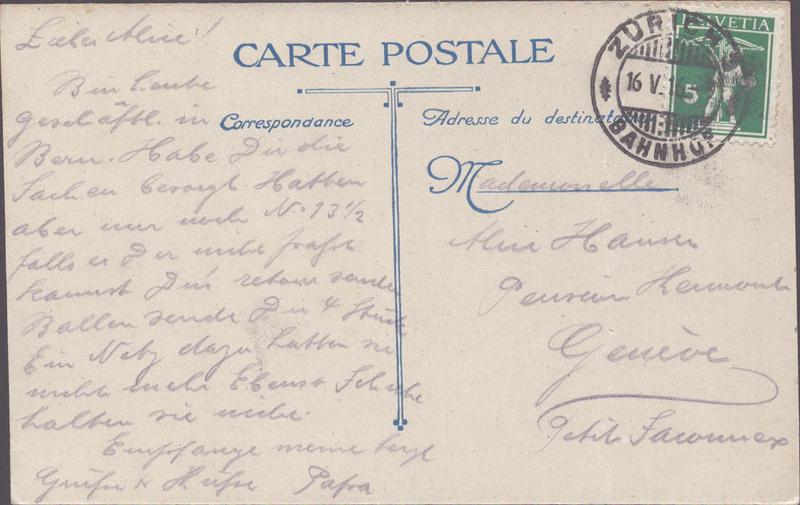 Liebe Alice!
Bin heute
geschäftl. in
Bern. Habe Dir die
Sachen besorgt. Hatten
aber nur noch No 13 1/2
falls es Dir nicht passt
kannst Du's retour senden
Ballen sende Dir 4 Stück
Ein Netz dazu hatten sie
nicht mehr Ebenso Schuhe
hatten sie nicht.
Empfange meine herzl
Grüsse & Küsse Papa
CARTE POSTALE
Correspondance
Adresse du destinataire
ZÜRICH
16 V. 16
BAHNHOF
HELVETIA
5
Mademoiselle
Alice Hauser
Pension
Genève
Petit Saconnex